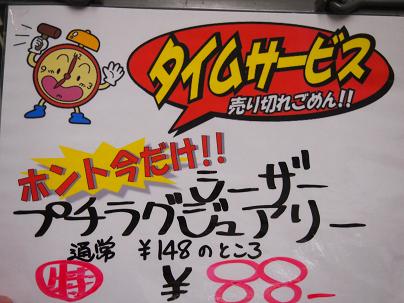 タイムサービス
売り切れごめん!!
ホント今だけ!!
レーザー
プチラグジュアリー
通常 ¥148のところ
特 ¥88-